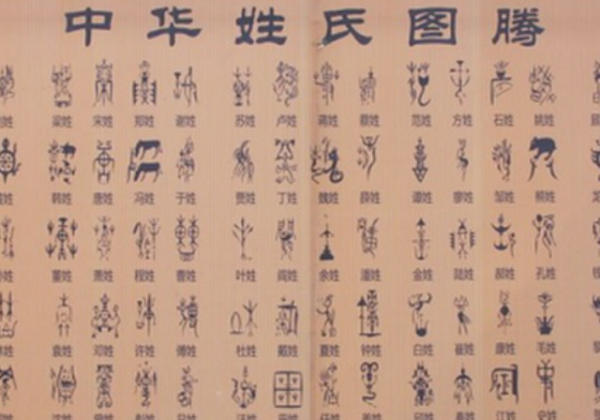 中华姓氏图腾
梁姓 宋姓 郑姓 谢姓 苏姓 卢姓 蒋姓 蔡姓 范姓 方姓 石姓 姚姓
韩姓 唐姓 冯姓 于姓 贾姓 丁姓 魏姓 薛姓 谭姓 廖姓 邹姓 熊姓
董姓 萧姓 程姓 曹姓 叶姓 阎姓 余姓 潘姓 金姓 陆姓 郝姓 孔姓
袁姓 邓姓 许姓 傅姓 杜姓 戴姓 夏姓 钟姓 白姓 崔姓 康姓 毛姓